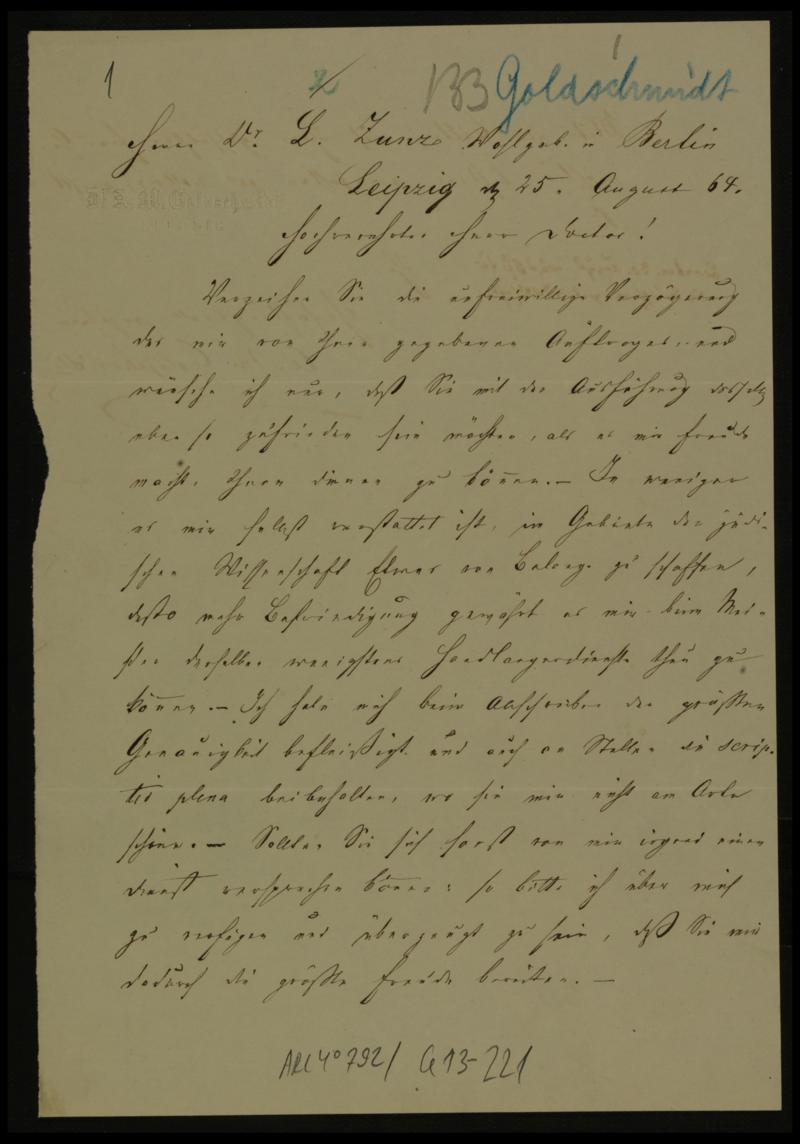 1
133 Goldschmidt
Herrn Dr. L. Zunz Wohlgeb. in Berlin
Leipzig d. 25. August 64.
Hochverehrter Herr Doctor!
Verzeihen Sie die unfreiwillige Verzögerung
des mir von Ihnen gegebenen Auftrages, und
wünsche ich nur, daß Sie mit der Ausführung desselb.
eben so zufrieden sein möchten, als es mir Freude
macht, Ihnen dienen zu können. – Je weniger
es mir selbst verstattet ist, im Gebiete der jüdi-
schen Wissenschaft Etwas von Belang zu schaffen,
desto mehr Befriedigung gewährt es mir beim Mei-
ster derselben wenigstens Handlangerdienste thun zu
können. – Ich habe mich beim Abschreiben der größten
Genauigkeit befleißigt und auch an Stellen die scrip-
tio plena beibehalten, wo sie mir nicht am Orte
schien. – Sollten Sie sich sonst von mir irgend einen
Dienst versprechen können: so bitte ich über mich
zu verfügen und überzeugt zu sein, daß Sie mir
dadurch die größte Freude bereiten. –
ARC 4° 792/ G13-221